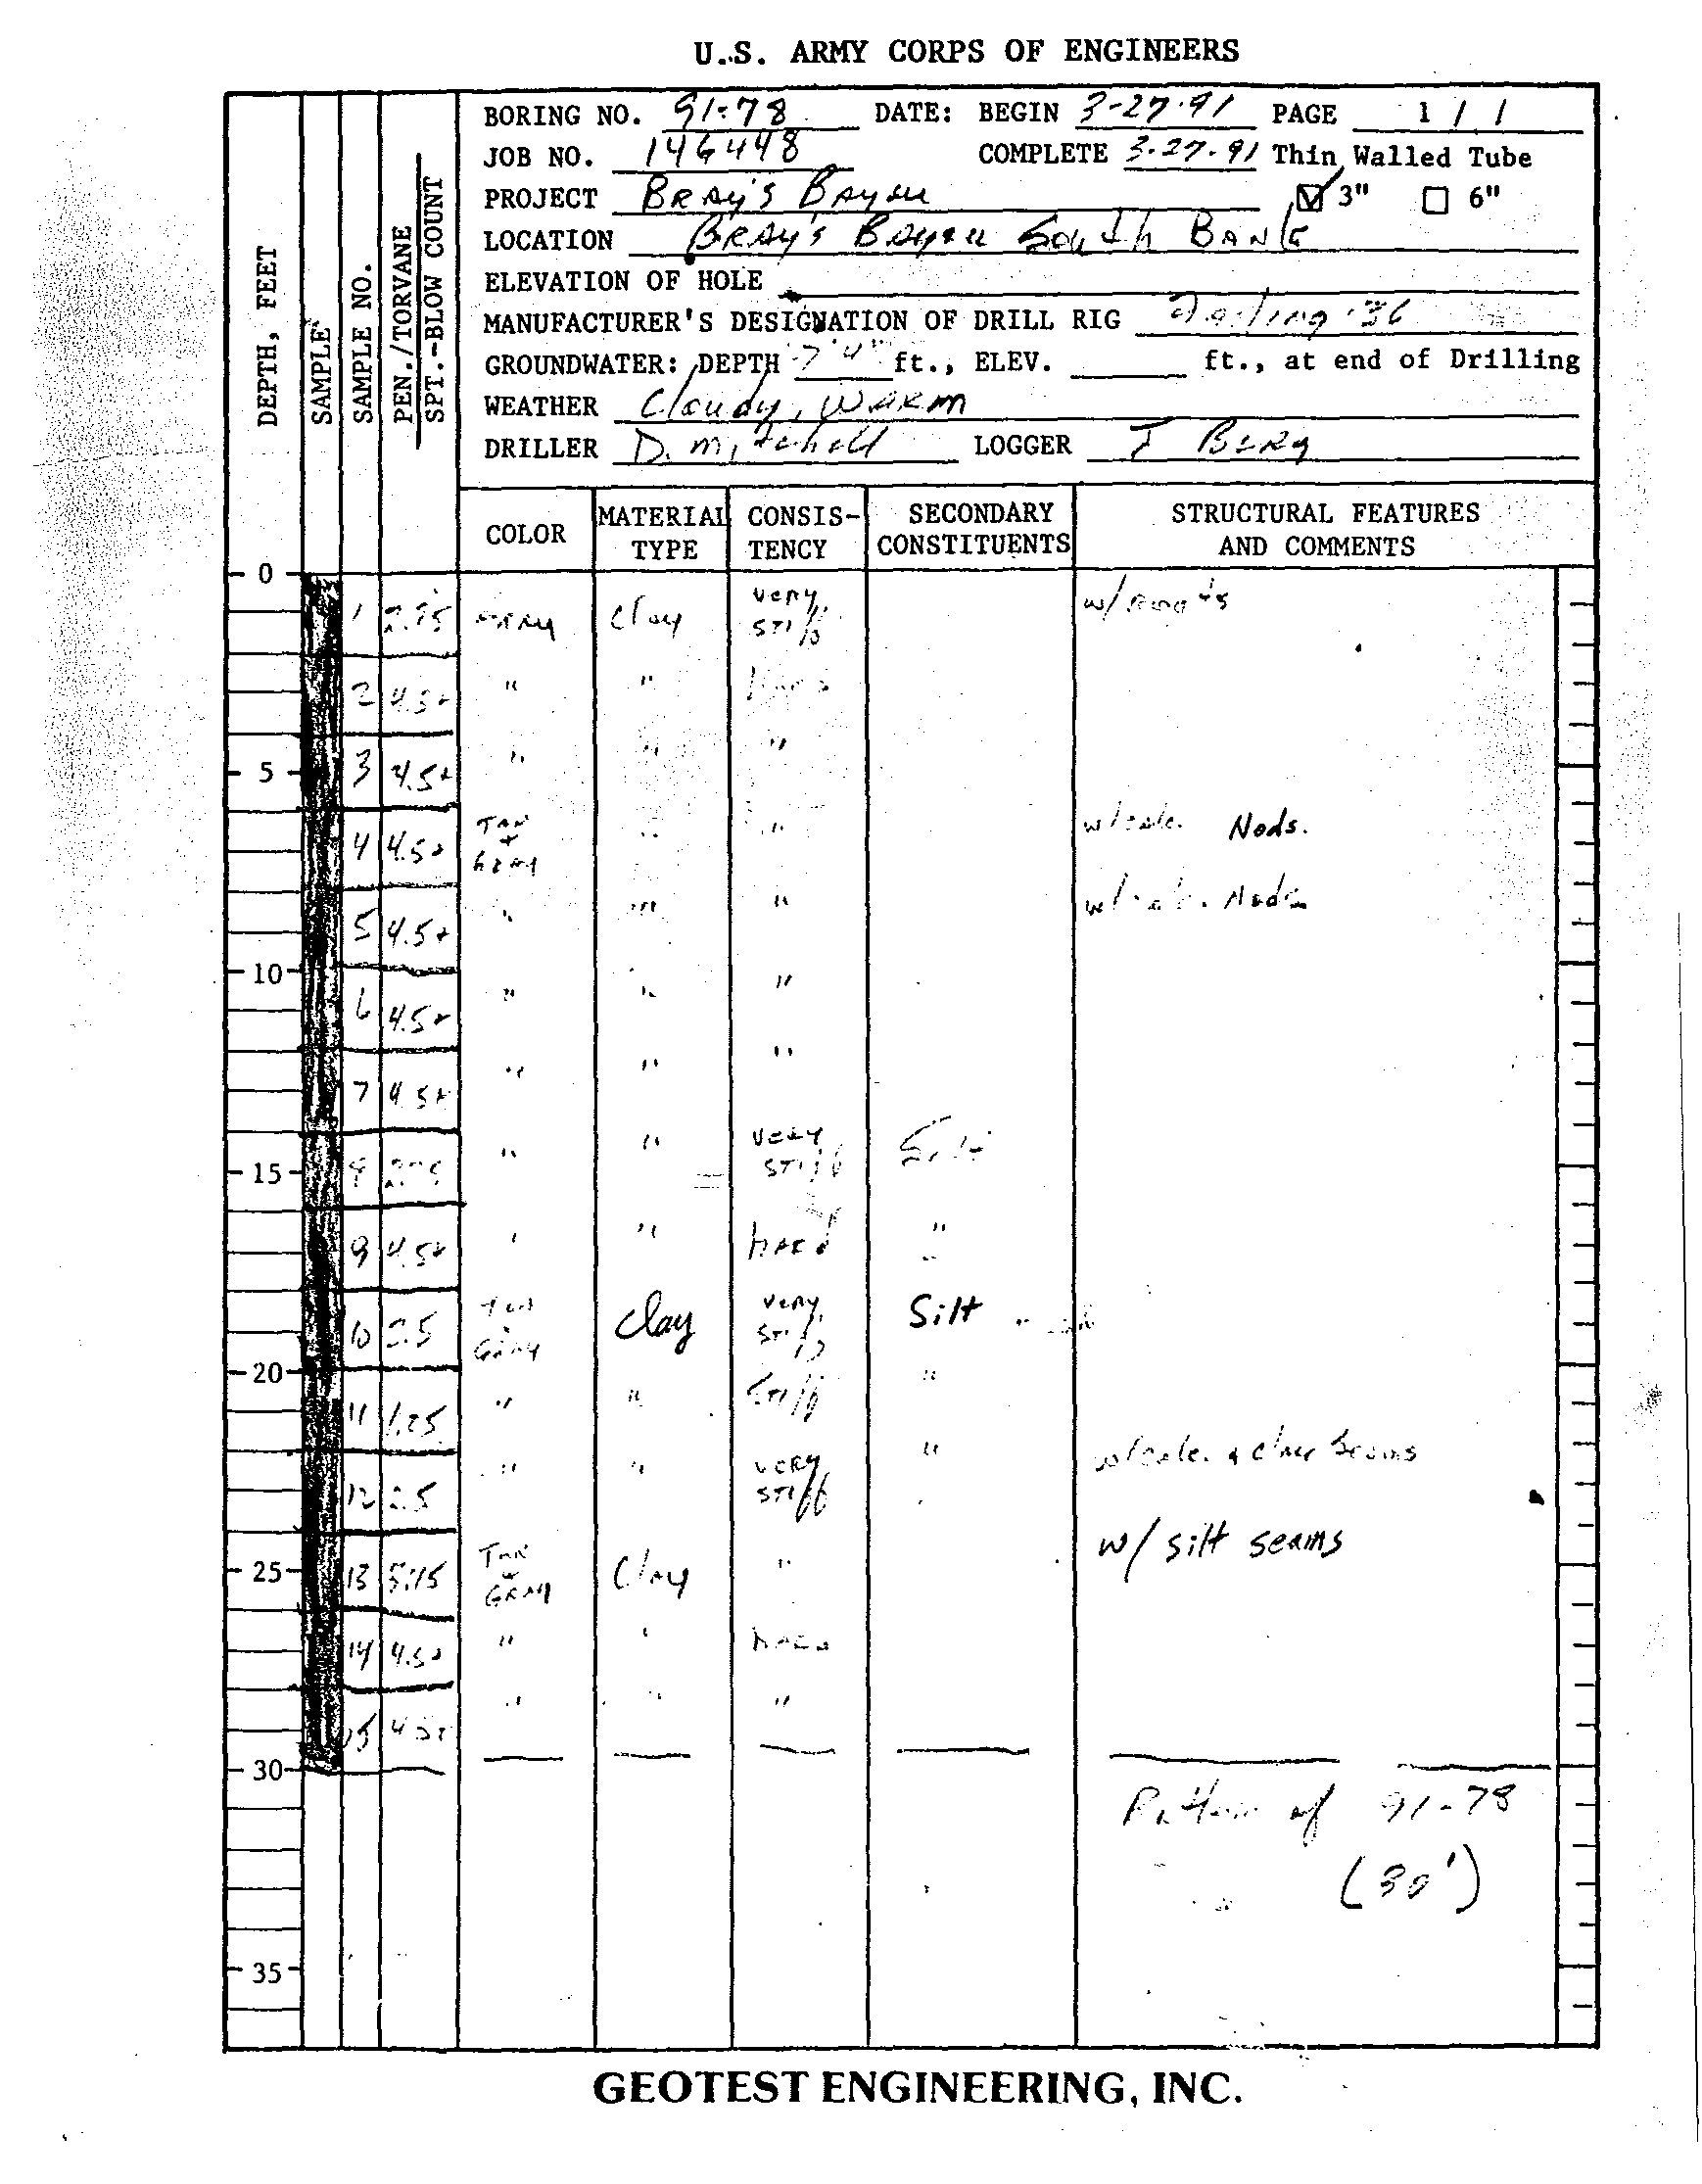 U.S. ARMY CORPS OF ENGINEERS
BORING NO. 91-78 DATE: BEGIN 3-27-91 PAGE 1 / 1
JOB NO. 146448 COMPLETE 3-27-91 Thin Walled Tube
PROJECT BRAy's BAyou 3" 6"
LOCATION BRAy's BAyou South BANK
ELEVATION OF HOLE
MANUFACTURER'S DESIGNATION OF DRILL RIG
GROUNDWATER: DEPTH 7'4" ft., ELEV. ft., at end of Drilling
WEATHER Cloudy, WARM
DRILLER D. Mitchell LOGGER J BERG
DEPTH, FEET
SAMPLE
SAMPLE NO.
PEN./TORVANE
SPT.-BLOW COUNT
COLOR MATERIAL TYPE CONSIS-TENCY SECONDARY CONSTITUENTS STRUCTURAL FEATURES AND COMMENTS
0
1 GRAY Clay Very Stiff w/ roots
2 4.5+ " " Hard
5 3 4.5+ " " "
4 4.5+ TAN + GRAY " " w/calc. Nods.
5 4.5+ " " " w/calc. Nods
10
6 4.5+ " " "
7 4.5+ " " "
15 8 " " VERY STIFF Silt
9 4.5+ " " HARD "
10 TAN GRAY Clay Very Stiff Silt
20
11 1.25 " " Stiff "
12 " " VERY STIFF " w/calc. & clay seams
25 13 TAN + GRAY Clay " w/ silt seams
14 4.5+ " " HARD
15 4.5+ " " "
30
Bottom of 91-78
(30')
35
GEOTEST ENGINEERING, INC.